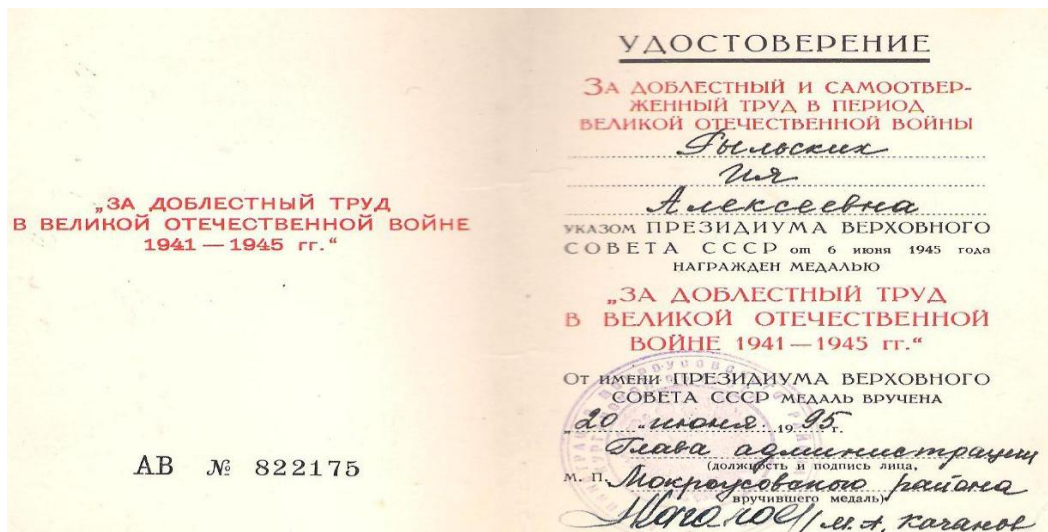 „ЗА ДОБЛЕСТНЫЙ ТРУД
В ВЕЛИКОЙ ОТЕЧЕСТВЕННОЙ ВОЙНЕ
1941 — 1945 гг.“
АВ № 822175
УДОСТОВЕРЕНИЕ
ЗА ДОБЛЕСТНЫЙ И САМООТВЕР-
ЖЕННЫЙ ТРУД В ПЕРИОД
ВЕЛИКОЙ ОТЕЧЕСТВЕННОЙ ВОЙНЫ
Рыльских
Ия
Алексеевна
УКАЗОМ ПРЕЗИДИУМА ВЕРХОВНОГО
СОВЕТА СССР от 6 июня 1945 года
НАГРАЖДЕН МЕДАЛЬЮ
„ЗА ДОБЛЕСТНЫЙ ТРУД
В ВЕЛИКОЙ ОТЕЧЕСТВЕННОЙ
ВОЙНЕ 1941 — 1945 гг.“
ОТ ИМЕНИ ПРЕЗИДИУМА ВЕРХОВНОГО
СОВЕТА СССР МЕДАЛЬ ВРУЧЕНА
„20„ июня 1995 г.
Глава администрации
(должность и подпись лица,
М. П. Мокроусовского района
вручившего медаль)
/ М.А. Качанов